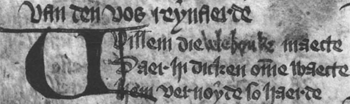 Van den vos reynaerde
Willem die vele bouke maecte
Daer hi dicken omme waecte
Hem vernoyde so haerde